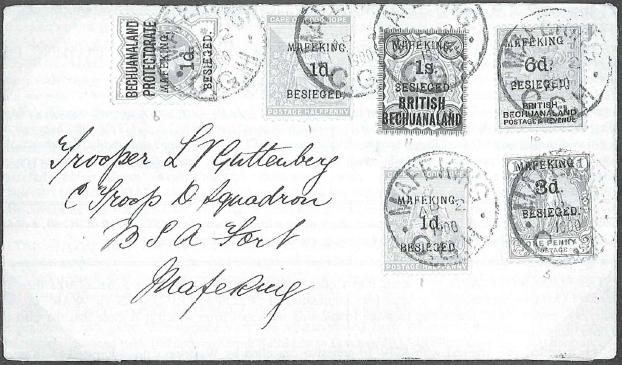 BECHUANALAND
PROTECTORATE
MAFEKING,
1d.
BESIEGED.
CAPE OF GOOD HOPE
MAFEKING,
1d.
BESIEGED.
POSTAGE HALFPENNY
MAFEKING,
1s.
BESIEGED.
BRITISH
BECHUANALAND
MAFEKING,
6d.
BESIEGED.
BRITISH
BECHUANALAND
POSTAGE & REVENUE
MAFEKING
C.G.H
Trooper L V Guttenberg
C Troop D Squadron
B S A Fort
Mafeking
MAFEKING,
1d.
BESIEGED.
POSTAGE HALFPENNY
MAFEKING
1900
C.G.H
MAFEKING,
3d.
BESIEGED.
ONE PENNY
POSTAGE
1900
6
1
11
10
1
5